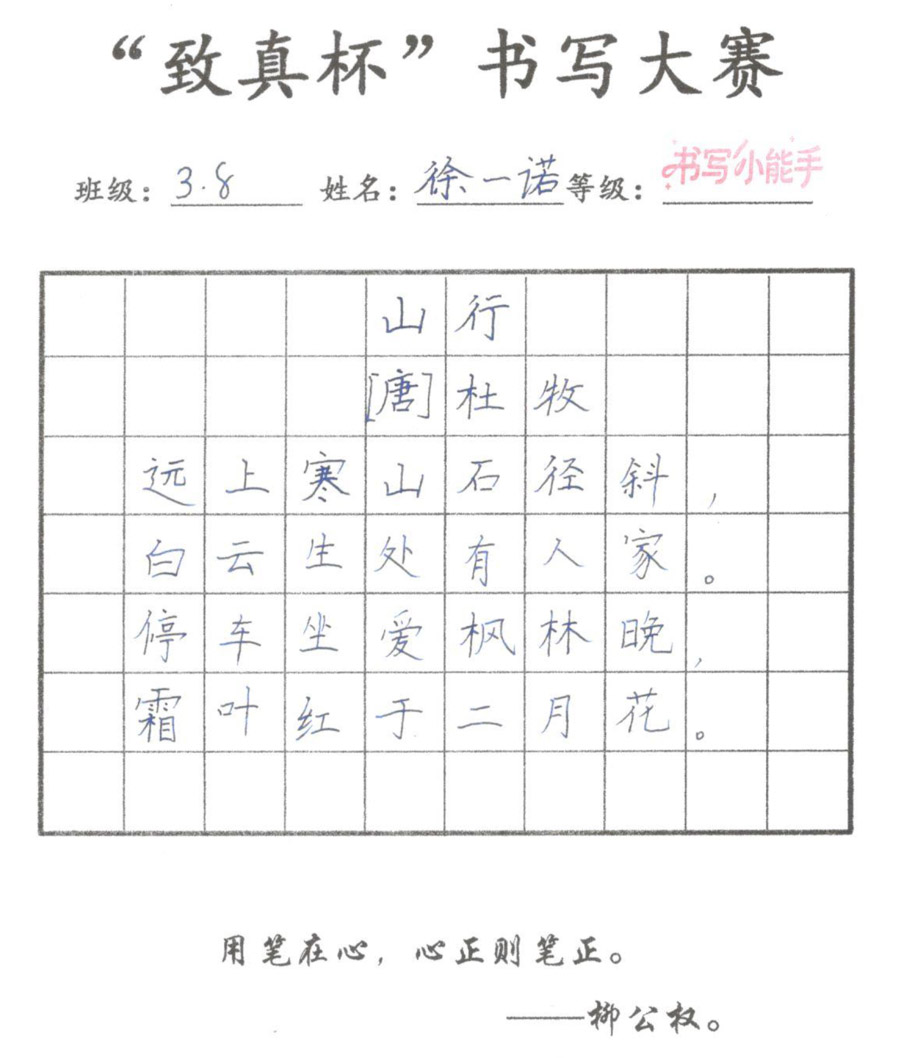 “致真杯”书写大赛
班级：3.8 姓名：徐一诺 等级：书写小能手
山行
[唐]杜牧
远上寒山石径斜，
白云生处有人家。
停车坐爱枫林晚，
霜叶红于二月花。
用笔在心，心正则笔正。
——柳公权。